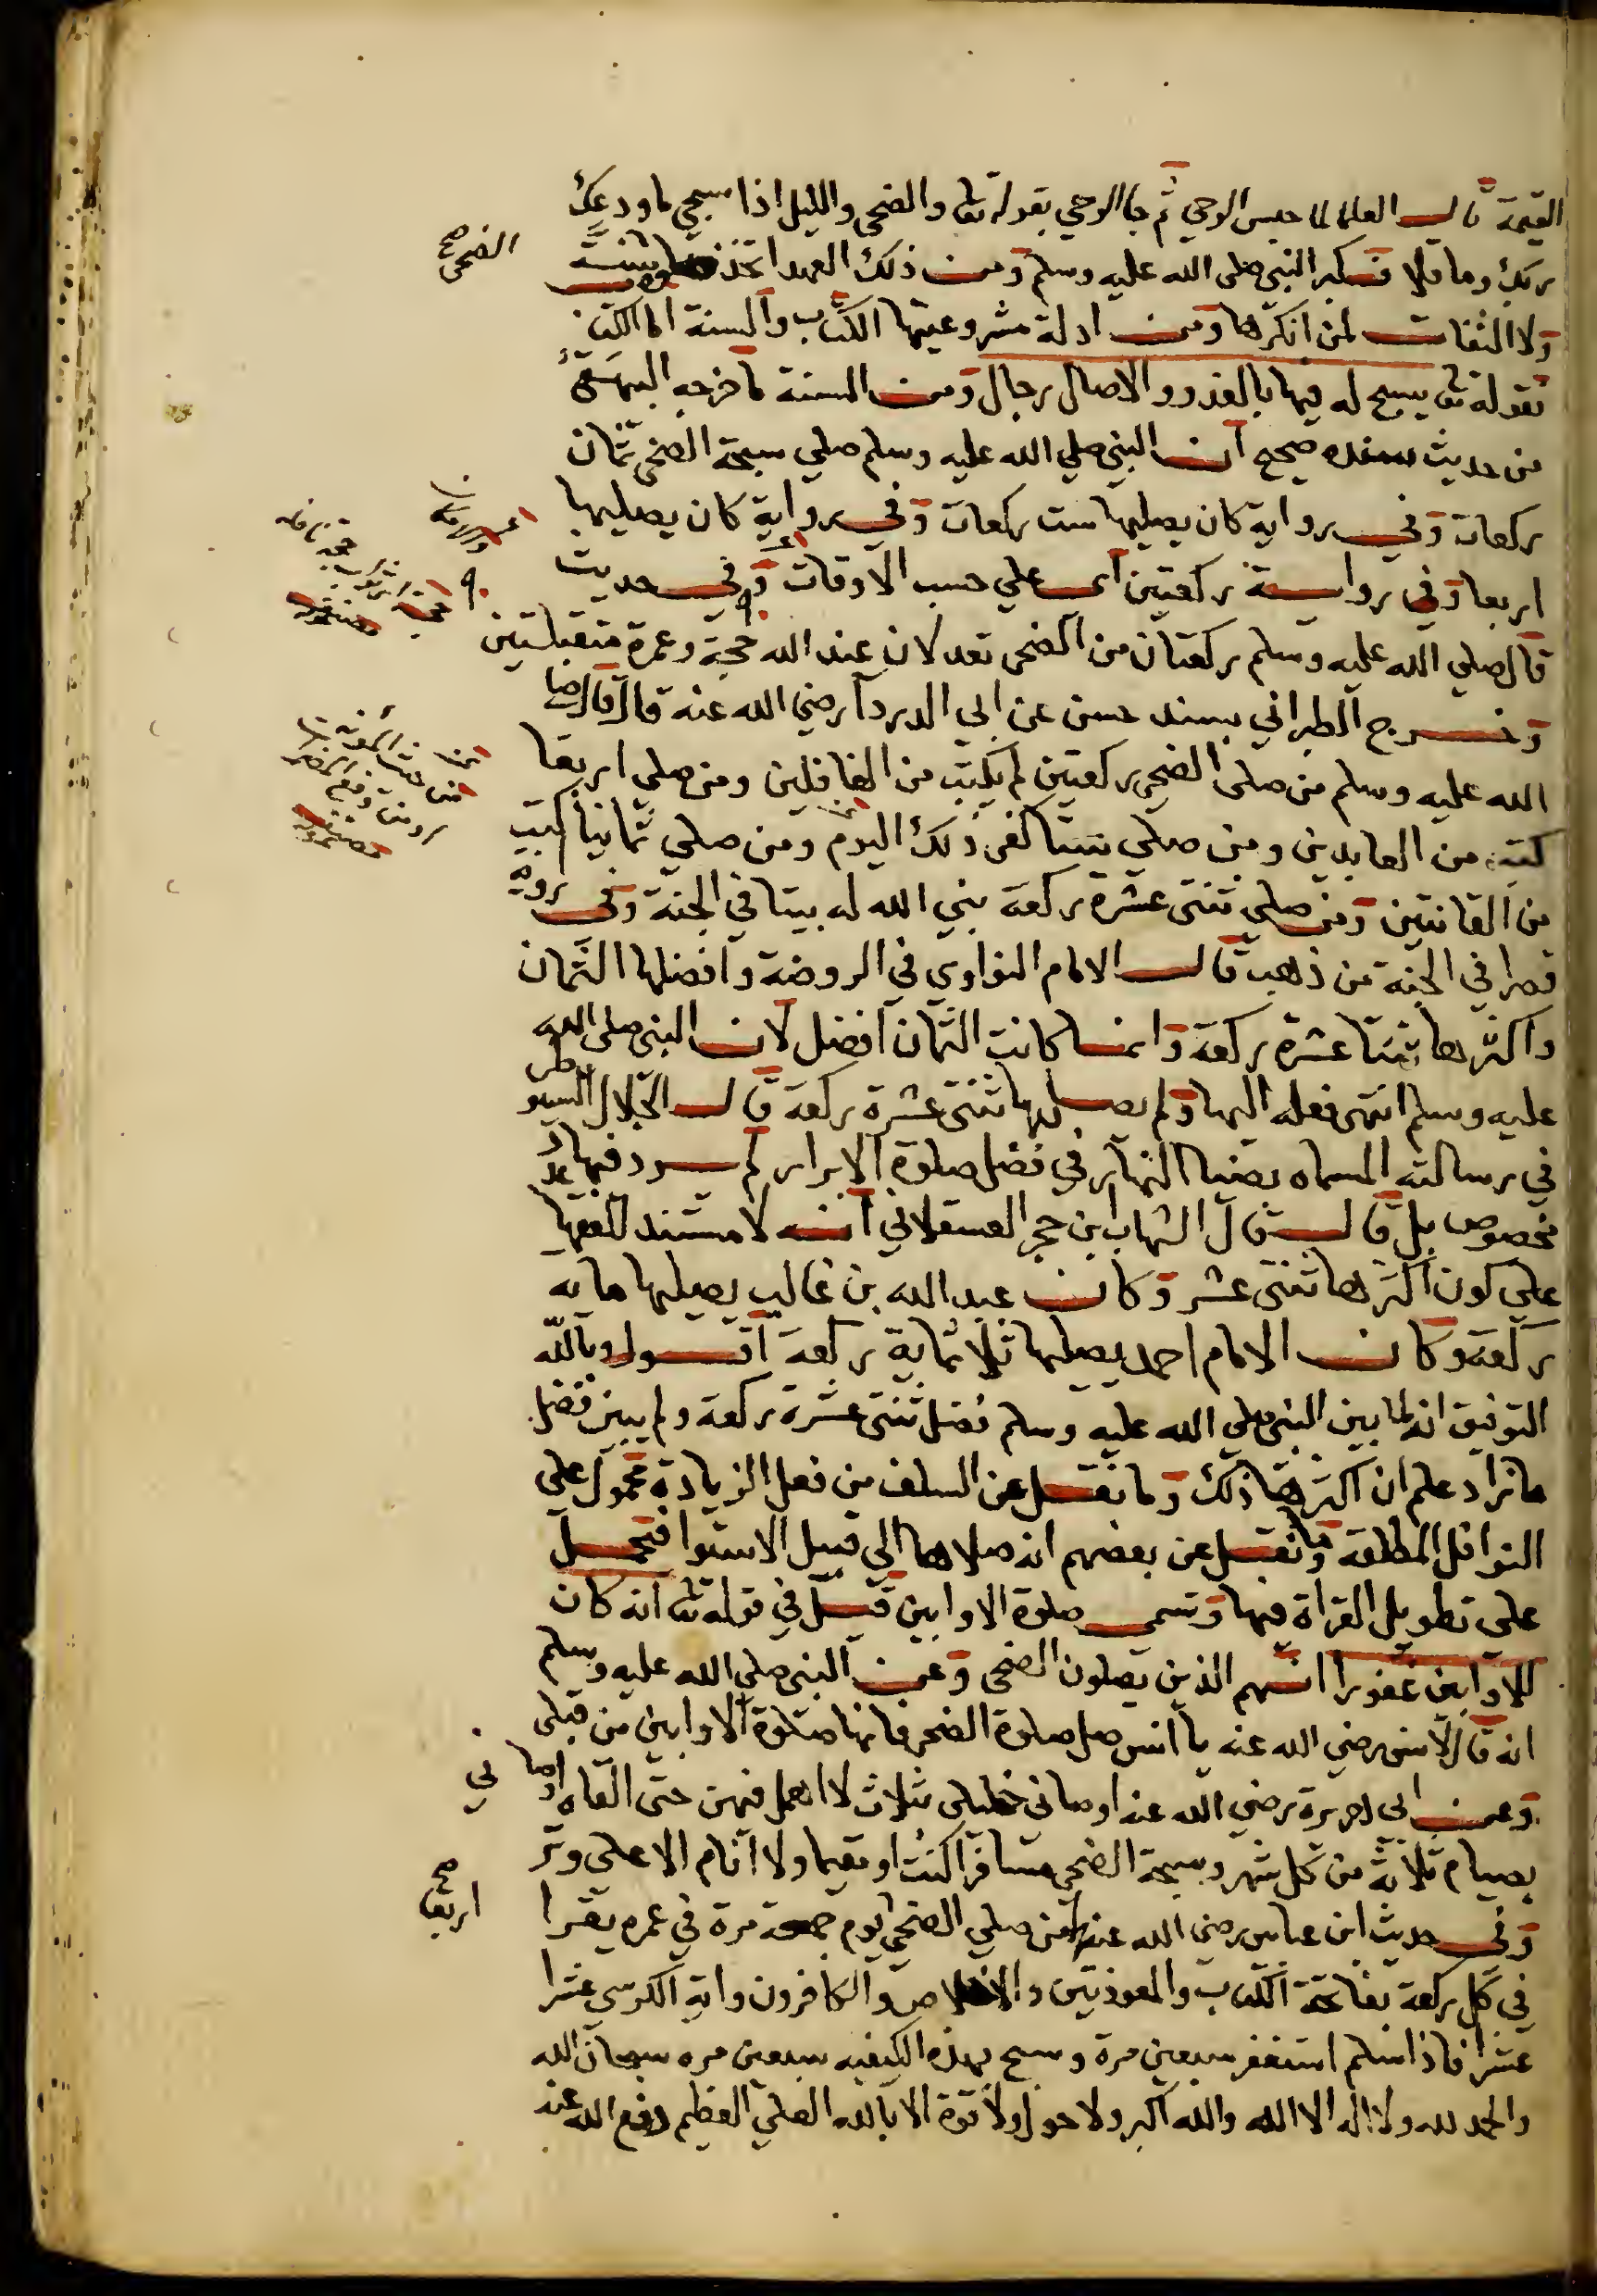 القيمة قال العلما لما حبس الوحي ثم جا الوحي بقوله تعا والضحى والليل اذا سجي ما ودعك
ربك وما قلا فكبر النبي صلى الله عليه وسلم ومن ذلك العهد اتخذ سنة
الضحى صح
ولا التفات لمن انكرها ومن ادلة مشروعيتها الكتاب والسنة اما الكتاب
فقوله تعا يسبح له فيها بالغدو والاصال رجال ومن السنة ما خرجه البيهقي
من حديث سنده صحيح ان النبي صلي الله عليه وسلم صلي سبحة الضحى ثمان
ركعات وفي رواية كان يصليها ست ركعات وفي رواية كان يصليها
اربعا وفي رواية ركعتين اي علي حسب الاوقات وفي حديث
قال صلي الله عليه وسلم ركعتان من الضحى تعدلان عند الله حجة وعمرة متقبلتين
وخرج الطبراني بسند حسن عن ابي الدردا رضي الله عنه قال قال صلى
الله عليه وسلم من صلى الضحى ركعتين لم يكتب من الغافلين ومن صلى اربعا
كتب من العابدين ومن صلي ستا كفى ذلك اليوم ومن صلي ثمانيا كتب
من القانتين ومن صلي ثنتى عشرة ركعة بني الله له بيتا في الجنة وفي رواية
قصرا في الجنة من ذهب قال الامام النواوي في الروضة وافضلها الثمان
واكثرها ثنتا عشرة ركعة وانما كانت الثمان افضل لان النبي صلى الله
عليه وسلم انتهى فعله اليها ولم يصليها ثنتى عشرة ركعة قال الجلال السيوطي
في رسالته المسماه بضيا النهار في فضل صلوة الابرار لم يرد فيها عدد
مخصوص بل قال قال الشهاب ابن حجر العسقلاني انه لا مستند للفقها
علي كون اكثرها ثنتى عشر وكان عبد الله بن غالب يصليها ماية
ركعة وكان الامام احمد يصليها ثلاثماية ركعة اقول وبالله
التوفيق انه لما بين النبي صلي الله عليه وسلم فضل ثنتى عشرة ركعة ولم يبين فضل
ما زاد علم ان اكثرها ذلك وما نقل عن السلف من فعل الزيادة محمول علي
النوافل المطلقة وما نقل عن بعضهم انه صلاها الي قبيل الاستوا فتحمل
علي تطويل القراة فيها وتسمى صلوة الاوابين قيل في قوله تعا انه كان
للاوابين غفورا انهم الذين يصلون الضحى وعن النبي صلي الله عليه وسلم
انه قال لانس رضي الله عنه يا انس صل صلوة الضحى فانها صلوة الاوابين من قبلي
وعن ابي هريرة رضي الله عنه اوصاني خليلي بثلاث لا اهمل فيهن حتى القاه اوصاني
بصيام ثلاثة من كل شهر وسبحة الضحى مسافرا كنت او مقيما ولا انام الا على وتر
وفي حديث ابن عباس رضي الله عنه من صلي الضحى يوم جمعة مرة في عمره يقرا
اربعا صح
في كل ركعة بفاتحة الكتاب والمعوذتين والاخلاص والكافرون واية الكرسي عشرا
عشرا فاذا سلم استغفر سبعين مرة وسبح بهذه الكيفيه سبعين مره سبحان الله
والحمد لله ولا اله الا الله والله اكبر ولا حول ولا قوة الا بالله العلي العظيم دفع الله عنه